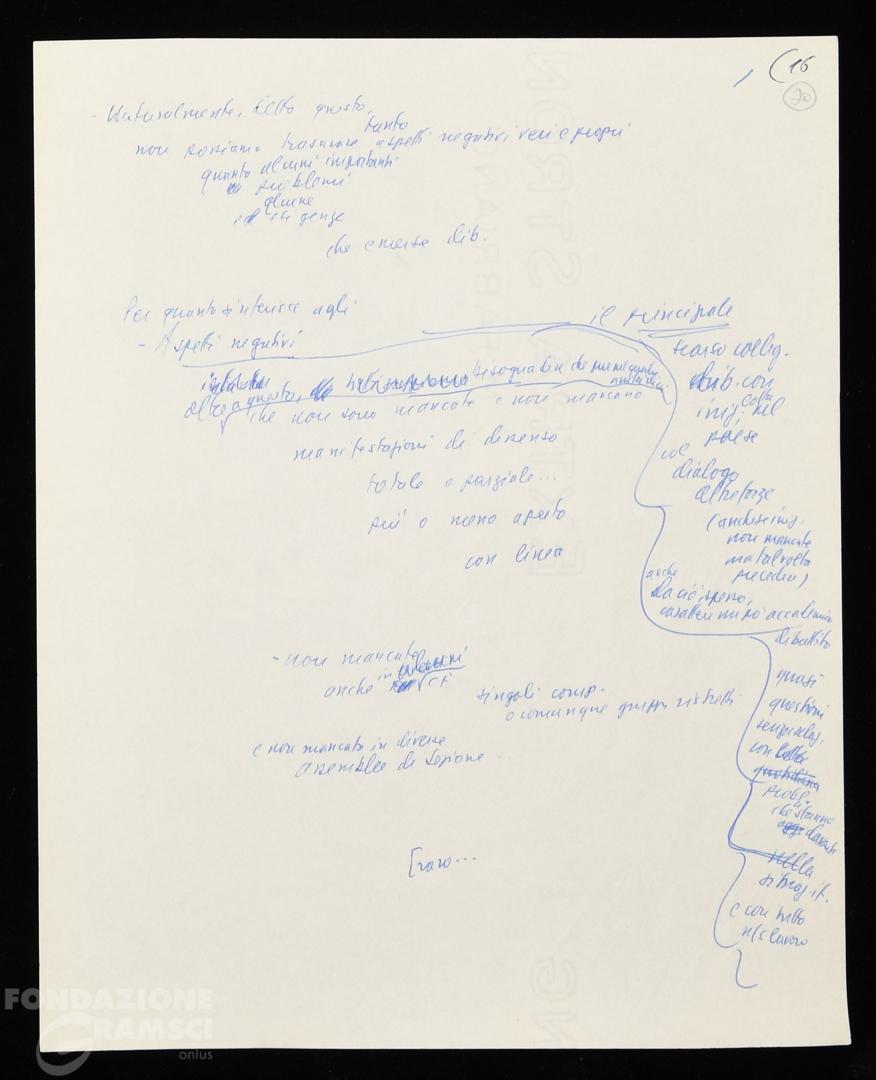 (16
20
- Naturalmente, detto questo,
tanto
non possiamo trascurare aspetti negativi veri e propri
quanto alcuni importanti
problemi
alcune
che emerse dib.
Per quanto si riferisce agli
- Aspetti negativi
il principale
scarso colleg.
dib. con
lotta
nel
paese
col
dialogo
altre forze
(anche se iniz.
non mancate
ma talvolta
anche
da ciò, spesso,
carattere un po' accademico
dibattito
quasi
questioni
con lotta
quotidiana
probl.
che stanno
davanti
nella
sit.
e con tutto
lavoro
oltre a questo, bisogna dire che
che non sono mancate e non mancano
manifestazioni di dissenso
totale o parziale...
più o meno aperto
con linea
- non mancato
anche in CF
singoli comp.
o comunque gruppi ristretti
e non mancato in diverse
assemblee di sezione.
[raro...
FONDAZIONE
GRAMSCI
onlus